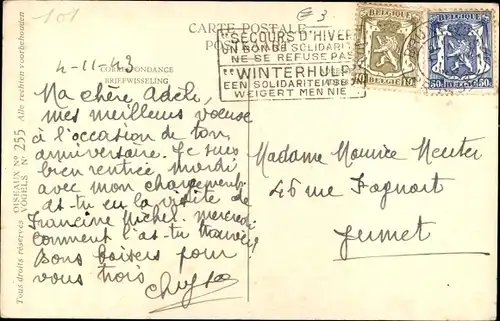 101
€3
CARTE POSTALE
"SECOURS D'HIVER"
UN BON DE SOLIDARITÉ
NE SE REFUSE PAS
"WINTERHULP"
EEN SOLIDARITEITSBON
WEIGERT MEN NIET
BELGIQUE
BELGIE
10
10
BELGIQUE
BELGIE
50
50
CORRESPONDANCE
BRIEFWISSELING
4-11-43
Ma chère Adèle,
mes meilleurs voeux
à l'occasion de ton
anniversaire. Je suis
bien rentrée mardi
avec mon chargement
as-tu eu la visite de
Francine Michel. mercredi
comment l'as-tu trouvée?
Bons baisers pour
vous trois
Madame Maurice
46 rue
Jumet
Tous droits réservés OISEAUX No 255 Alle rechten voorbehouden
VOGELS Nr